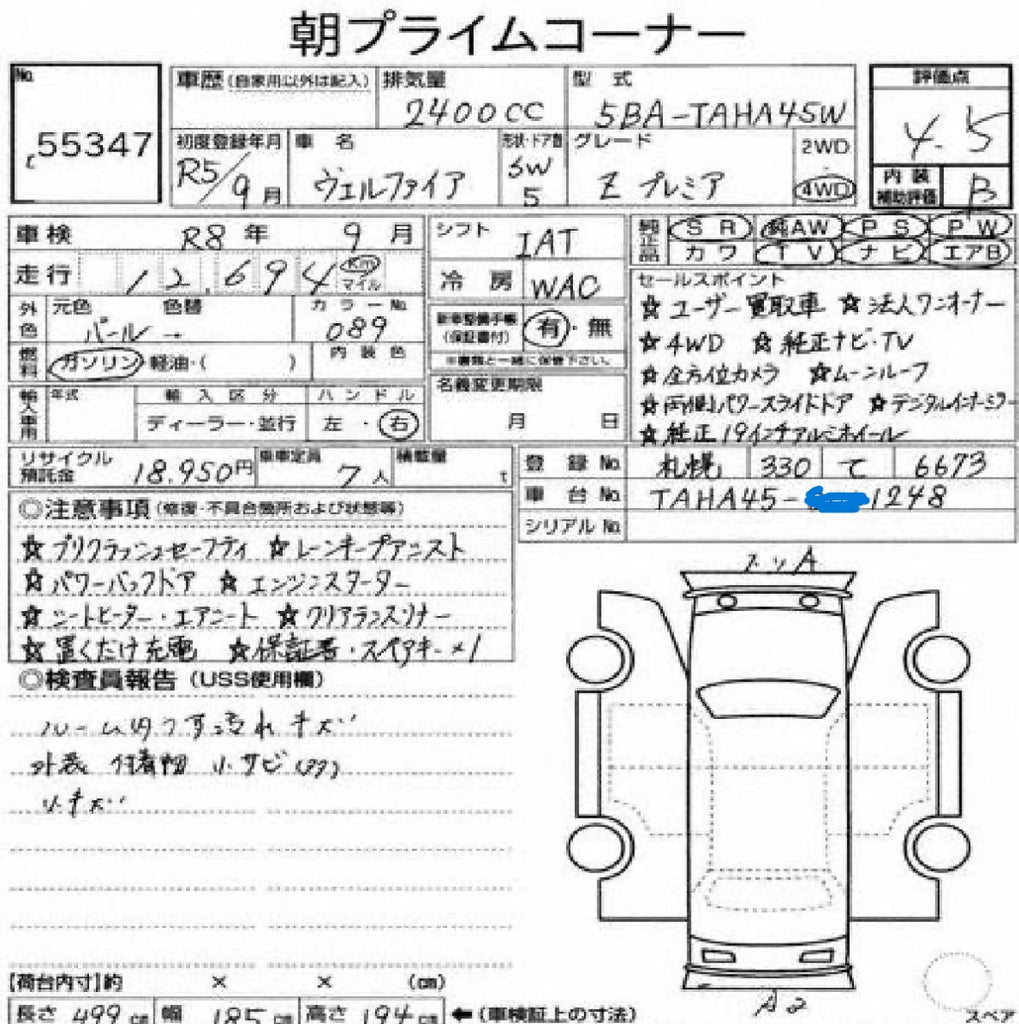 朝プライムコーナー
No. 55347
車歴(自家用以外は記入)
排気量 2400CC
型式 5BA-TAHA45W
評価点 4.5
初度登録年月 R5/9月
車名 ヴェルファイア
形状・ドア数 SW 5
グレード Z プレミア
2WD
4WD
内装補助評価 B
車検 R8年 9月
走行 12,694 Km マイル
外色 元色 パール → 色替
カラーNo. 089
燃料 ガソリン・軽油・( )
内装色
輸入車用 年式
輸入区分 ディーラー・並行
ハンドル 左・右
シフト IAT
冷房 WAC
新車整備手帳(保証書付) 有・無
※書類と一緒に保管下さい。
名義変更期限 月 日
純正品 SR 純AW PS PW
カワ TV ナビ エアB
セールスポイント
☆ユーザー買取車 ☆法人ワンオーナー
☆4WD ☆純正ナビ・TV
☆全方位カメラ ☆ムーンルーフ
☆両側パワースライドドア ☆デジタルインナーミラー
☆純正19インチアルミホイール
リサイクル預託金 18,950円
乗車定員 7人
積載量 t
登録No. 札幌 330 て 6673
車台No. TAHA45- 1248
シリアルNo.
◎注意事項(修復・不具合箇所および状態等)
☆プリクラッシュセーフティ ☆レーンキープアシスト
☆パワーバックドア ☆エンジンスターター
☆シートヒーター・エアシート ☆クリアランスソナー
☆置くだけ充電 ☆保証書・スペアキー×1
◎検査員報告(USS使用欄)
ルーム内うす汚れ キズ
外装 付着物 小サビ
小キズ
A
A2
スペア
【荷台内寸】約 × × (cm)
長さ 499cm 幅 185cm 高さ 194cm ←(車検証上の寸法)